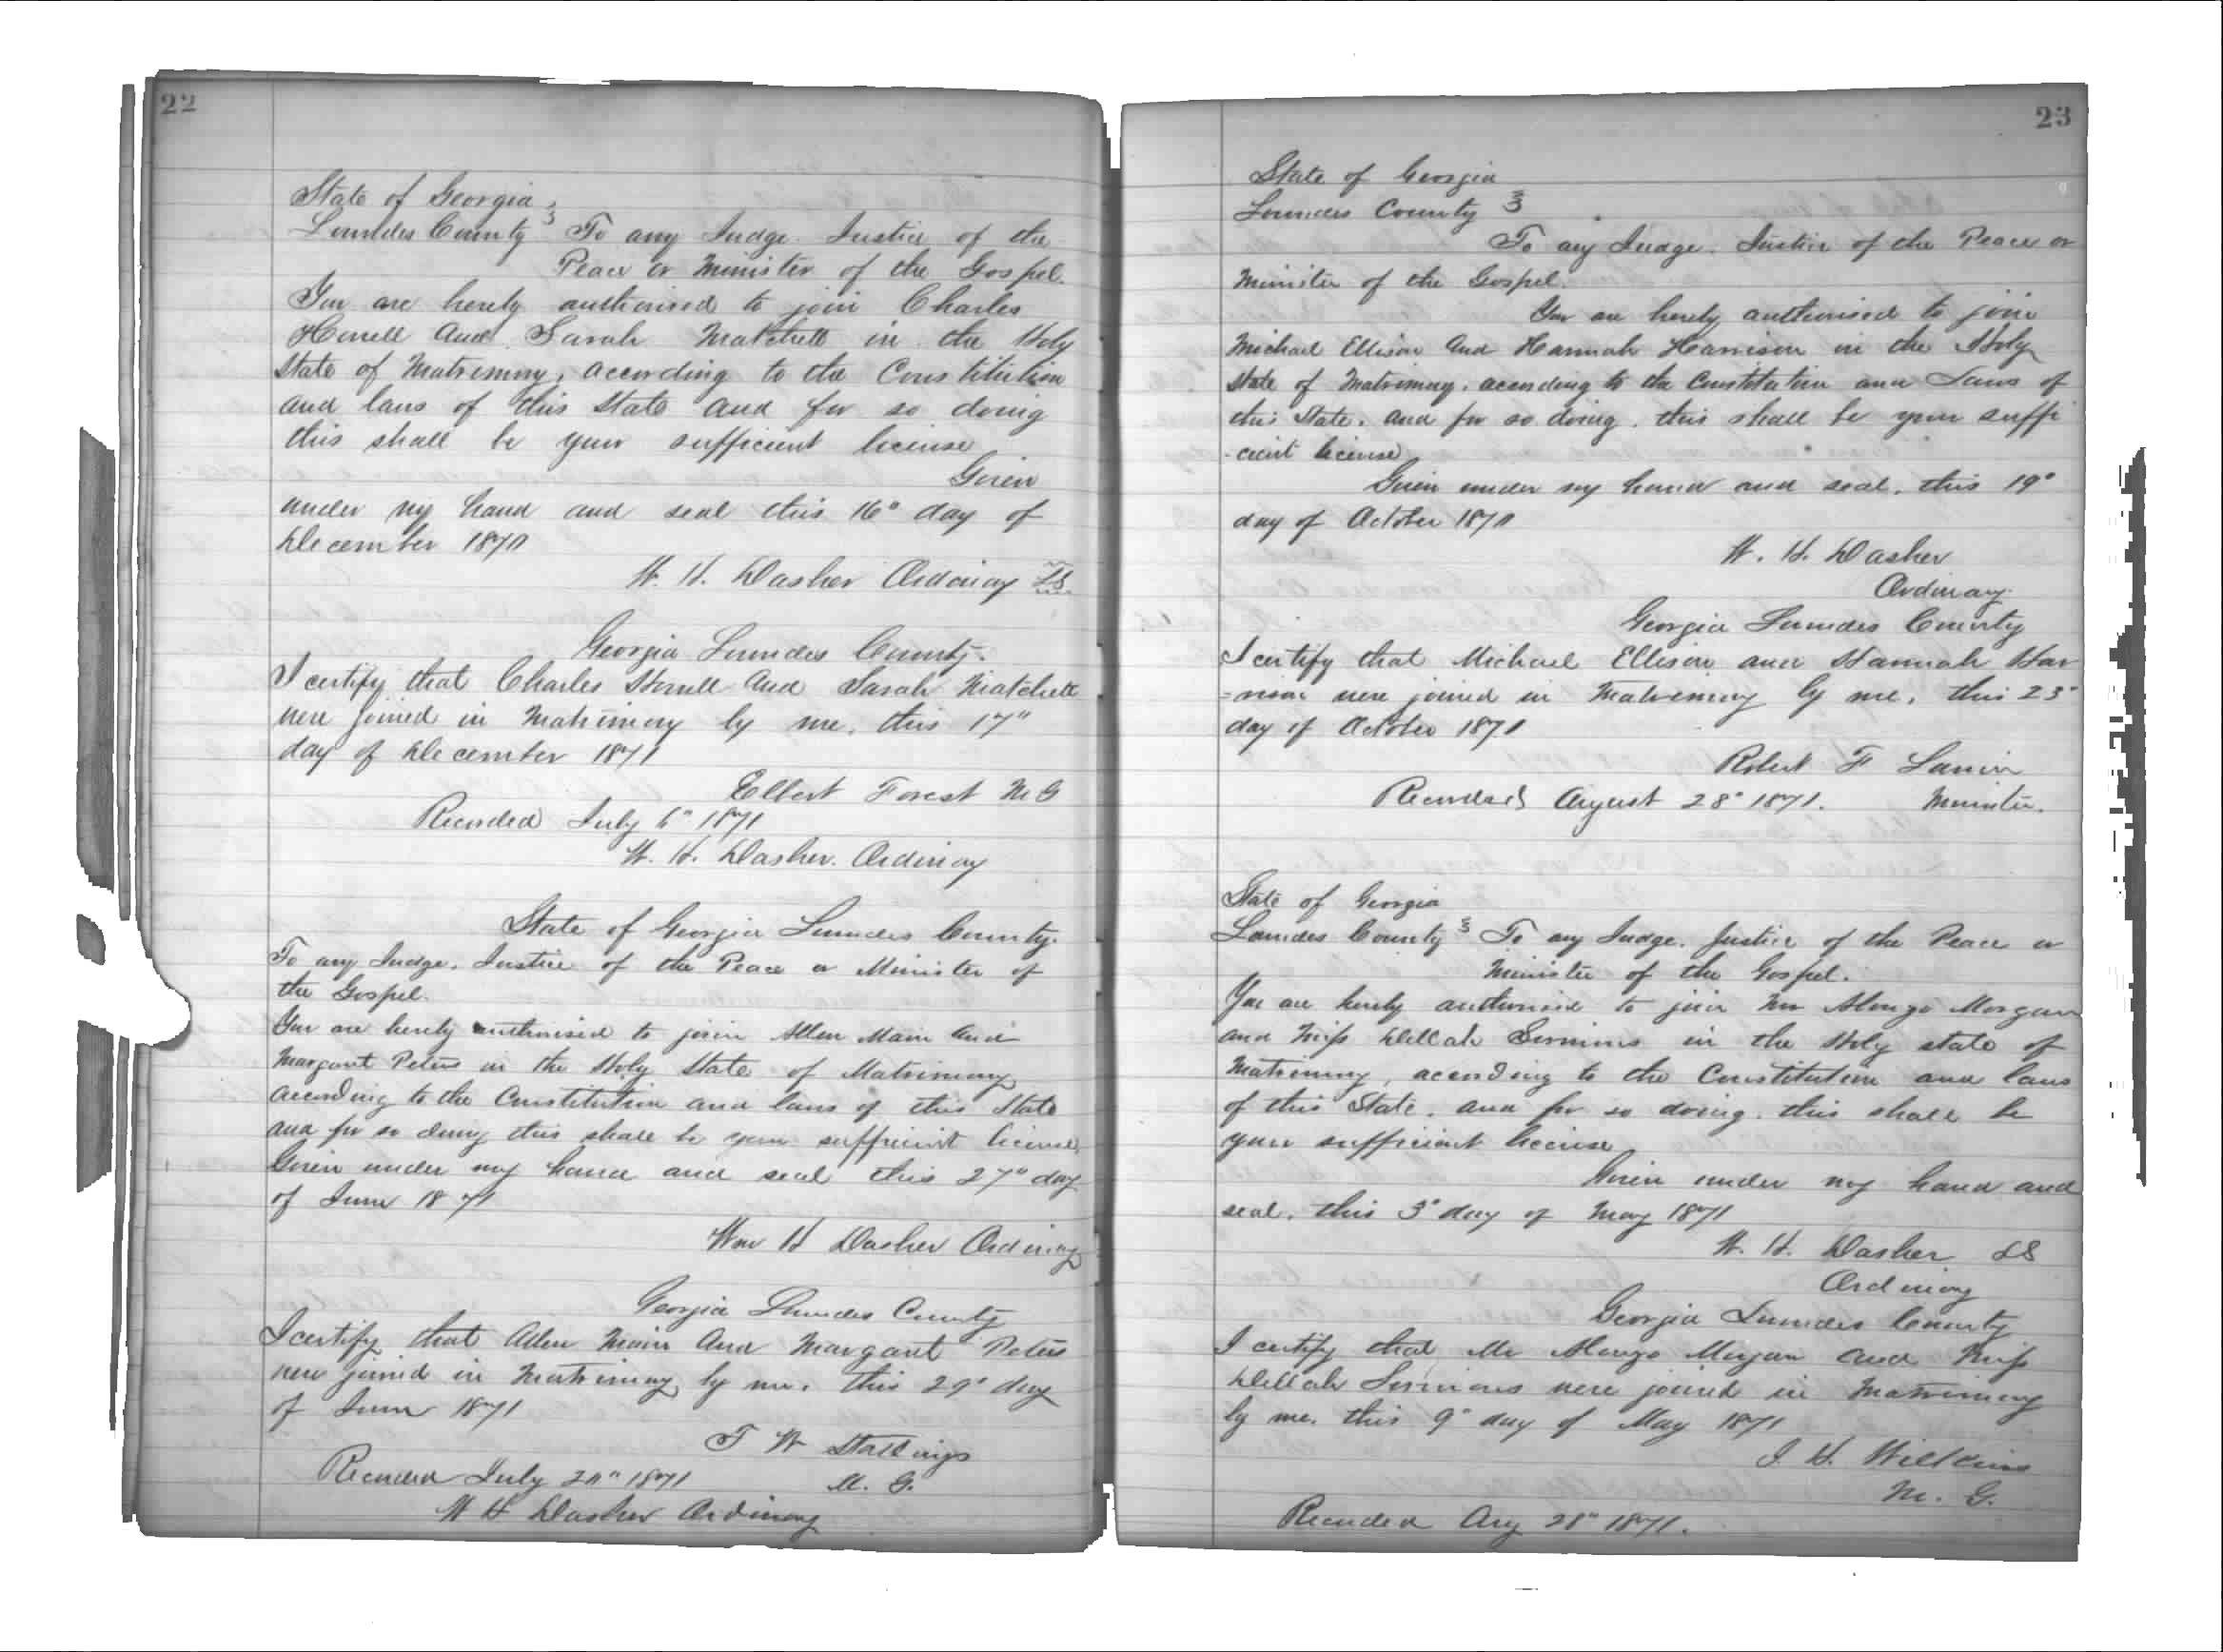 22
State of Georgia
Lowndes County To any Judge. Justice of the
Peace or Minister of the Gospel.
You are hereby authorised to join Charles
Horrell and Sarah Matchett in the Holy
State of Matrimony, according to the Constitution
and laws of this State and for so doing
this shall be your sufficient license
Given
under my hand and seal this 16" day of
December 1870
W. H. Dasher Ordinary LS
Georgia Lowndes County.
I certify that Charles Horrell and Sarah Matchett
were joined in Matrimony by me, this 17"
day of December 1871
Elbert Forest M G
Recorded July 6" 1871
W. H. Dasher. Ordinary
State of Georgia Lowndes County.
To any Judge. Justice of the Peace or Minister of
the Gospel.
You are hereby authorised to join Allen Main and
Margaret Peters in the Holy State of Matrimony
according to the Constitution and laws of this State
and for so doing this shall be your sufficient license,
Given under my hand and seal this 27" day
of June 1871
Wm H Dasher Ordinary
Georgia Lowndes County
I certify that Allen Main and Margaret Peters
were joined in Matrimony by me. this 29" day
of June 1871
T W Stallings
Recorded July 20" 1871 M. G.
W H Dasher Ordinary
23
State of Georgia
Lowndes County
To any Judge. Justice of the Peace or
Minister of the Gospel.
You are hereby authorised to join
Michael Ellison and Hannah Harrison in the Holy
State of Matrimony. according to the Constitution and Laws of
this State. and for so doing. this shall be your suffi
-cient license
Given under my hand and seal, this 19"
day of October 1870
W. H. Dasher
Ordinary.
Georgia Lowndes County
I certify that Michael Ellison and Hannah Har
=rison were joined in Matrimony by me, this 23"
day of October 1870
Robert F Lanier
Recorded August 28" 1871. Minister.
State of Georgia
Lowndes County To any Judge. Justice of the Peace or
Minister of the Gospel.
You are hereby authorised to join Mr Alonzo Morgan
and Miss Dellah Simmons in the Holy state of
Matrimony, according to the Constitution and laws
of this State. and for so doing. this shall be
your sufficient license
Given under my hand and
seal. this 3" day of May 1871
W. H. Dasher LS
Ordinary
Georgia Lowndes County
I certify that Mr Alonzo Morgan and Miss
Dellah Simmons were joined in Matrimony
by me. this 9" day of May 1871
J. H. Wilkins
M. G.
Recorded Aug 28" 1871.